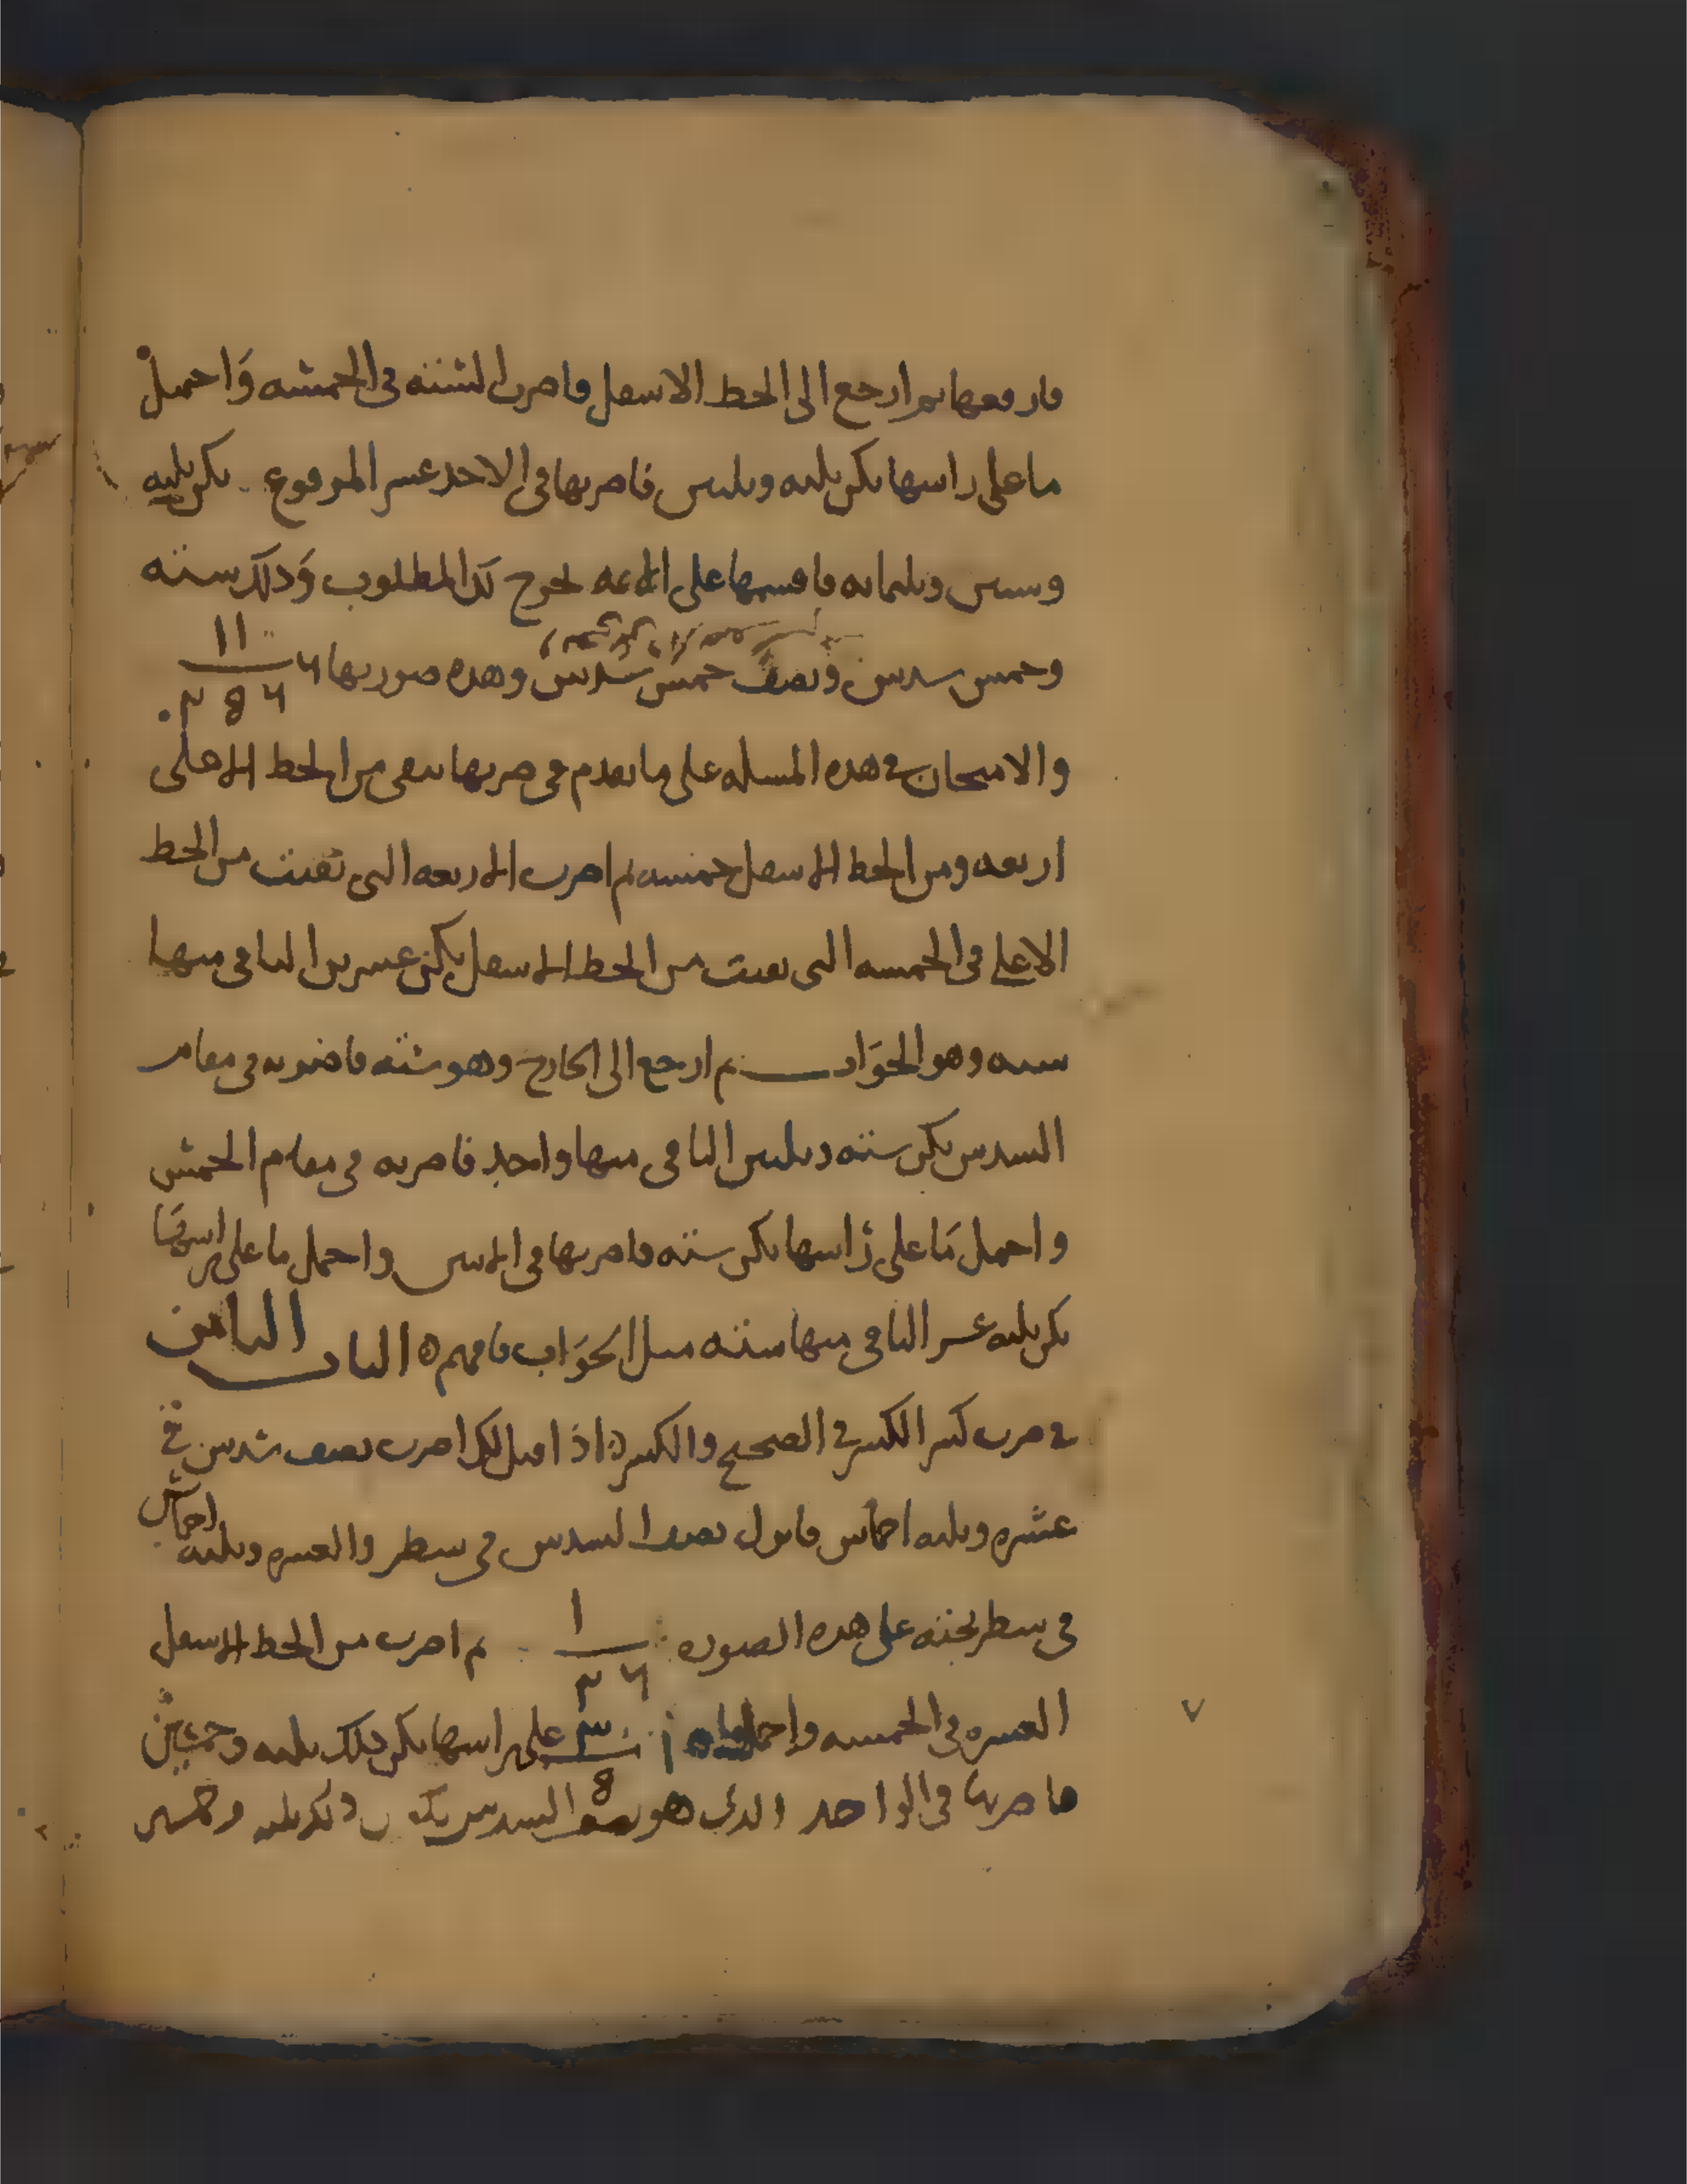 فارفعها ثم ارجع الى الخط الاسفل فاضرب الستة في الخمسه وَاحمل
ما على راسها يكن ثلثه وثلثين فاضربها في الاحد عشر المرفوع يكن ثلثه
وستين وثلثمائه فاقسمها على الائمه يخرج لك المطلوب وَذلك سته
وخمس سدس ونصف خمس سدس وهذه صورتها ٦ ١١
٢ 8 ٦
والامتحان في هذه المسله على ما تقدم في ضربها يبقى من الخط الاعلى
اربعه ومن الخط الاسفل خمسه ثم اضرب الاربعه التي بقيت من الخط
الاعلى في الخمسه التي بقيت من الخط الاسفل يكن عشرين الباقي منها
سته وهو الجوَاب ثم ارجع الى الخارج وهو سته فاضربه في مقام
السدس يكن سته وثلثين الباقي منها واحد فاضربه في مقام الخمس
واحمل مَا على رَاسها يكن سته فاضربها في الاثنين واحمل ما على راسها
يكن ثلثه عشر الباقي منها سته مثل الجوَاب فافهم ه الباب الثامن
في ضرب كسر الكسر في الصحيح والكسر ه اذا قيل لك اضرب نصف سدس في
عشره وثلثه اخماس فانزل نصف السدس في سطر والعشره وثلثه اخماس
في سطر تحته على هذه الصوره ١ ثم اضرب من الخط الاسفل
٢ ٦
العشره في الخمسه واحمل ما ٣ على راسها يكن ذلك ثلثه وخمسين
8
فاضربها في الواحد الذي هو نصف السدس يكن ذلك ثلثه وخمسين
٧